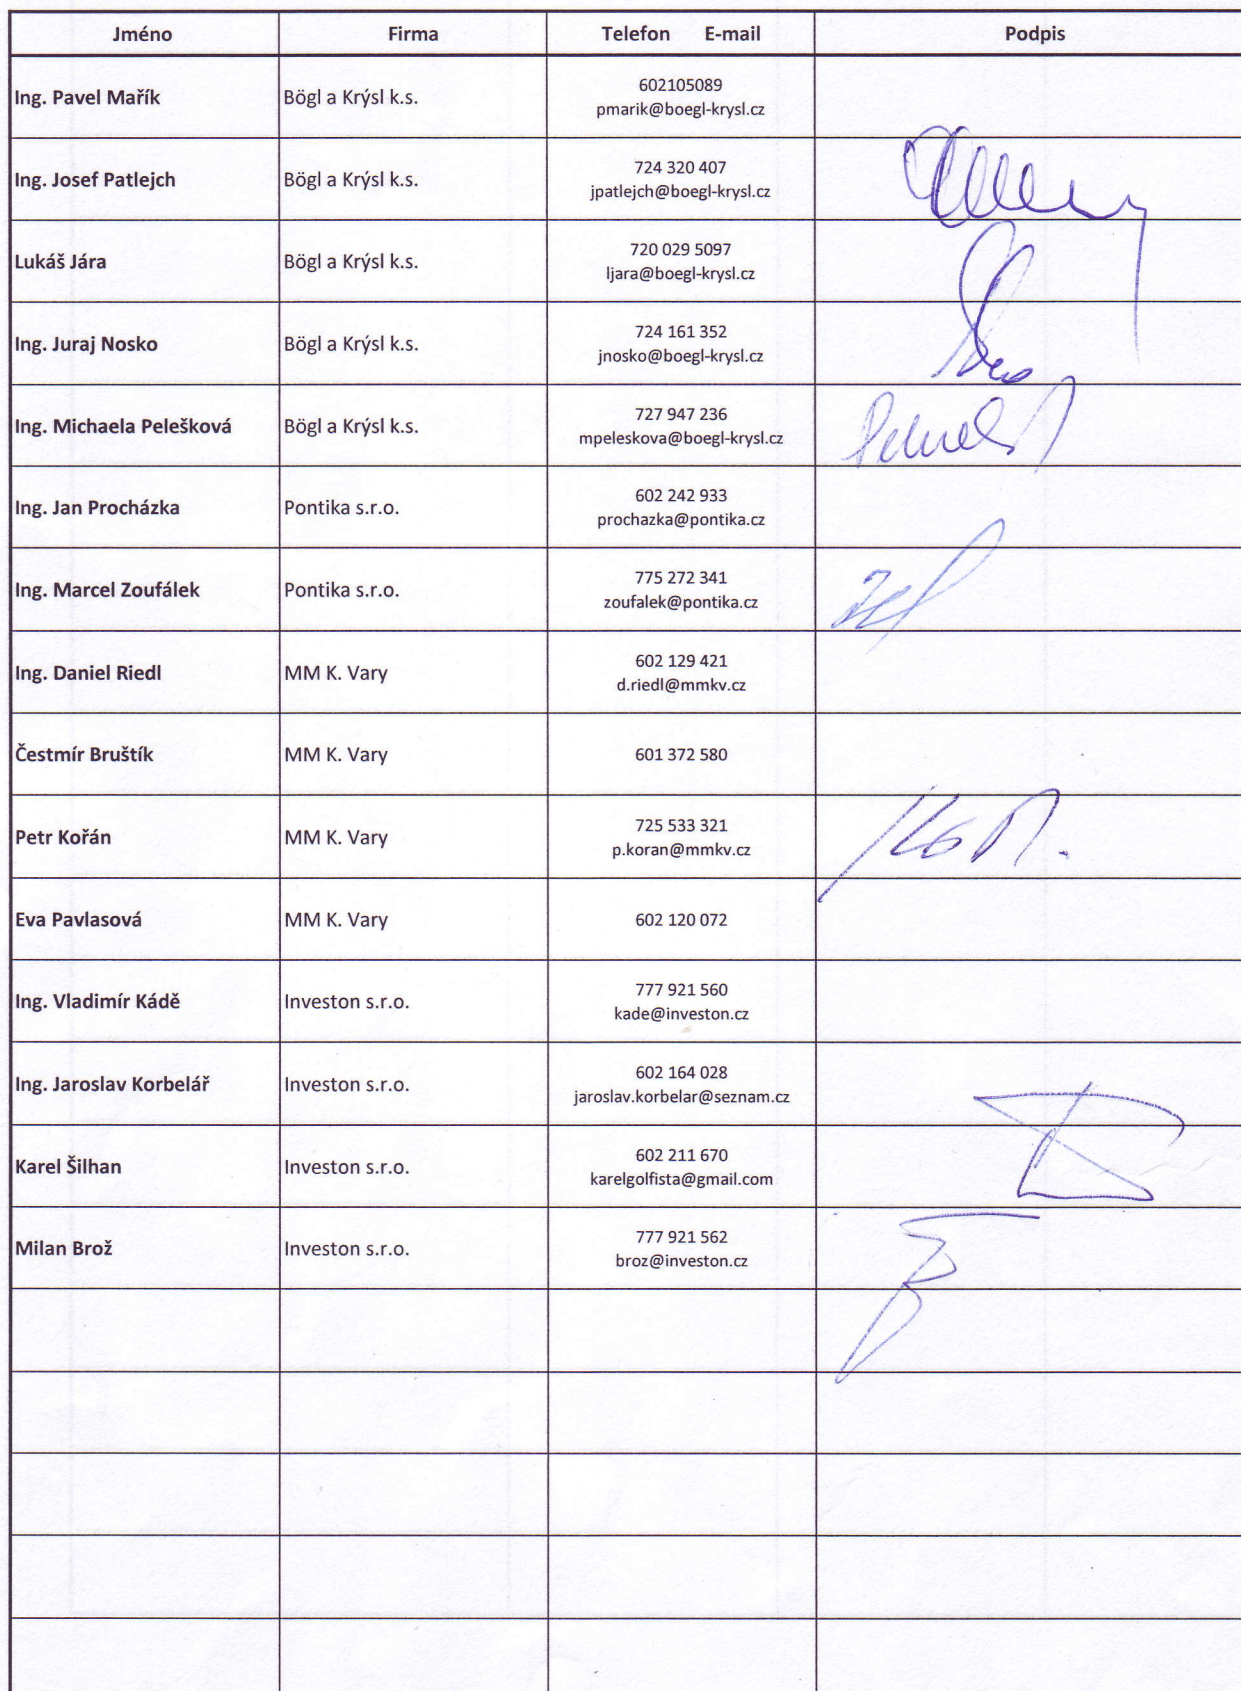 Jméno Firma Telefon E-mail Podpis
Ing. Pavel Mařík Bögl a Krýsl k.s. 602105089
pmarik@boegl-krysl.cz
Ing. Josef Patlejch Bögl a Krýsl k.s. 724 320 407
jpatlejch@boegl-krysl.cz
Lukáš Jára Bögl a Krýsl k.s. 720 029 5097
ljara@boegl-krysl.cz
Ing. Juraj Nosko Bögl a Krýsl k.s. 724 161 352
jnosko@boegl-krysl.cz
Ing. Michaela Pelešková Bögl a Krýsl k.s. 727 947 236
mpeleskova@boegl-krysl.cz
Ing. Jan Procházka Pontika s.r.o. 602 242 933
prochazka@pontika.cz
Ing. Marcel Zoufálek Pontika s.r.o. 775 272 341
zoufalek@pontika.cz
Ing. Daniel Riedl MM K. Vary 602 129 421
d.riedl@mmkv.cz
Čestmír Bruštík MM K. Vary 601 372 580
Petr Kořán MM K. Vary 725 533 321
p.koran@mmkv.cz
Eva Pavlasová MM K. Vary 602 120 072
Ing. Vladimír Kádě Investon s.r.o. 777 921 560
kade@investon.cz
Ing. Jaroslav Korbelář Investon s.r.o. 602 164 028
jaroslav.korbelar@seznam.cz
Karel Šilhan Investon s.r.o. 602 211 670
karelgolfista@gmail.com
Milan Brož Investon s.r.o. 777 921 562
broz@investon.cz